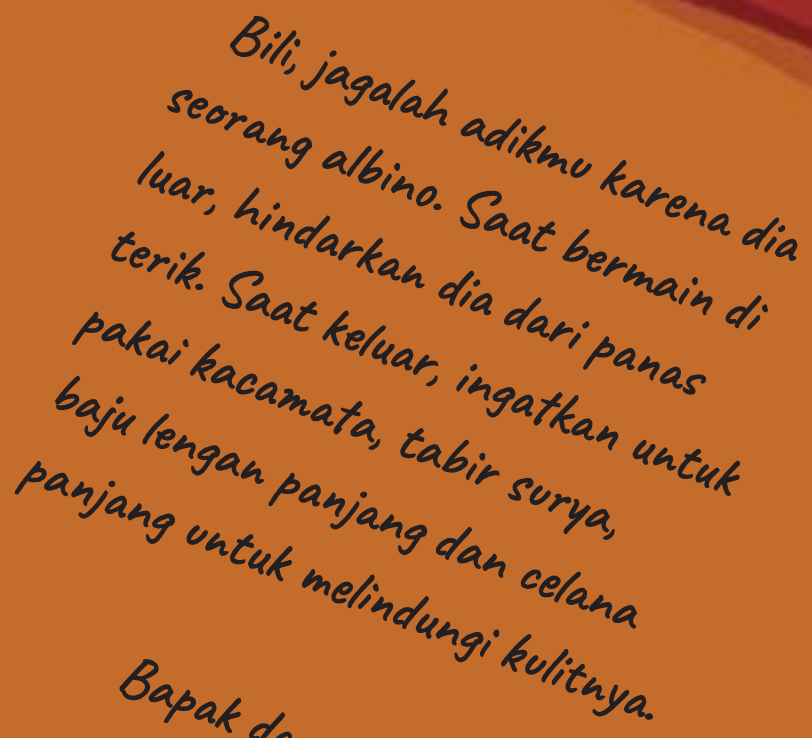 Bili, jagalah adikmu karena dia
seorang albino. Saat bermain di
luar, hindarkan dia dari panas
terik. Saat keluar, ingatkan untuk
pakai kacamata, tabir surya,
baju lengan panjang dan celana
panjang untuk melindungi kulitnya.
Bapak